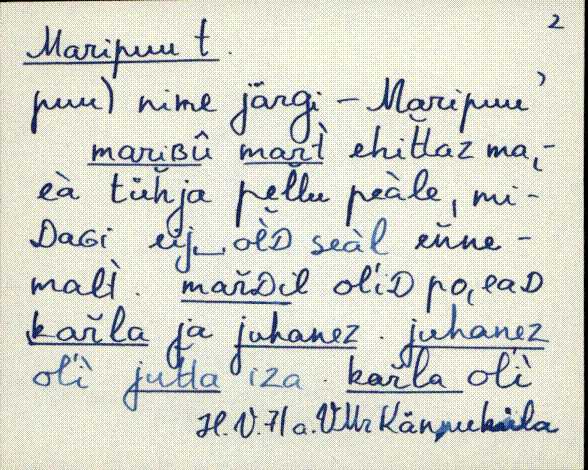 2
Maripuu t.
puu) nime järgi – Maripuu'
mariʙû mar̆t̀ ehit̆taz ma,-
eà tüh̆ja pel̆lu peàle, mi-
ᴅaɢi eij‿ol̆̀ᴅ seàl en̆ne-
malt̀. mar̆ᴅil ol'iᴅ po,eaᴅ
kar̆la ja juhanez. juhanez
ol'ì jut̆ta iza. kar̆la ol'ì
H. V. 71 a.